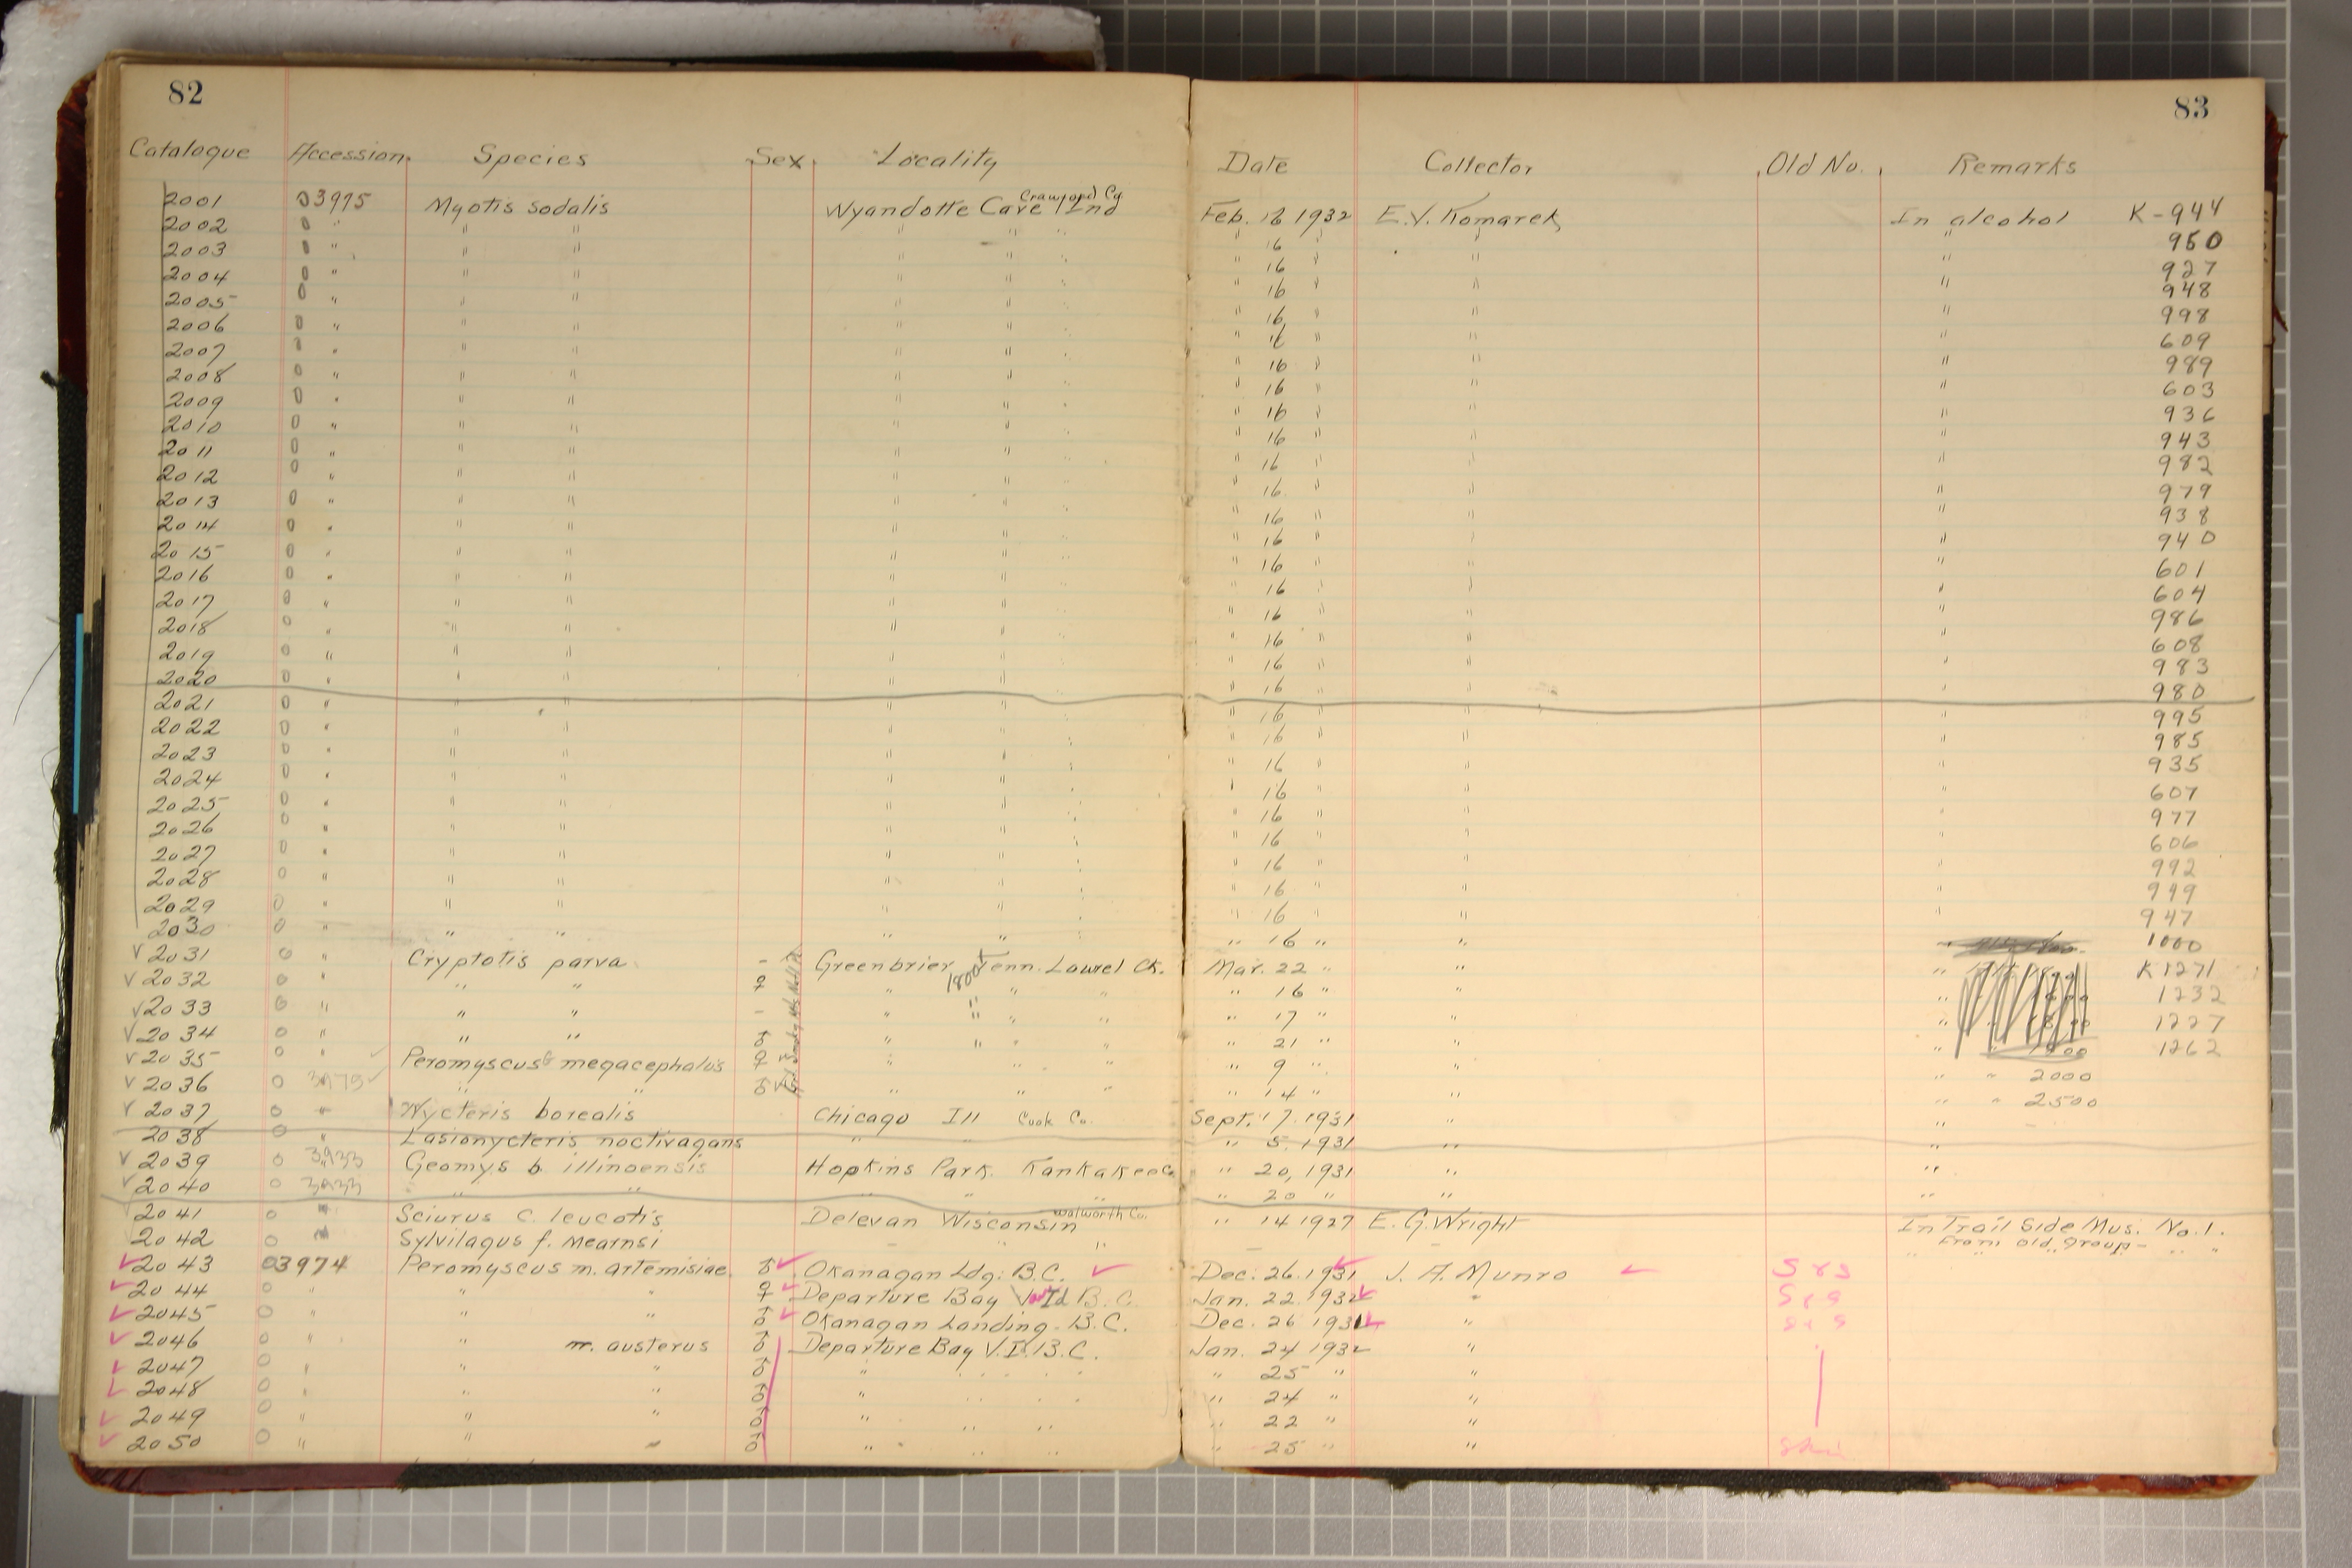 82
83
Catalogue Accession. Species Sex. Locality Date Collector Old No. Remarks
2001 03975 Myotis sodalis Wyandotte Cave Crawford Co. Ind Feb. 16 1932 E.V. Komarek In alcohol K-944
2002 0 " " " " " " " 16 " " " 950
2003 0 " " " " " " 16 " " 927
2004 0 " " " " " " 16 " " " 948
2005 0 " " " " " " 16 " " " 998
2006 0 " " " " " " 16 " " " 609
2007 0 " " " " " " 16 " " " 989
2008 0 " " " " " " 16 " " " 603
2009 0 " " " " " " 16 " " " 936
2010 0 " " " " " " 16 " " " 943
2011 0 " " " " " " 16 " " " 982
2012 0 " " " " " " 16 " " " 979
2013 0 " " " " " " 16 " " " 938
2014 0 " " " " " " 16 " " " 940
2015 0 " " " " " " 16 " " " 601
2016 0 " " " " " " 16 " " " 604
2017 0 " " " " " " 16 " " " 986
2018 0 " " " " " " 16 " " " 608
2019 0 " " " " " " 16 " " " 983
2020 0 " " " " " " 16 " " " 980
2021 0 " " " " " " 16 " " " 995
2022 0 " " " " " " 16 " " " 985
2023 0 " " " " " " 16 " " " 935
2024 0 " " " " " " 16 " " " 607
2025 0 " " " " " " 16 " " " 977
2026 0 " " " " " " 16 " " " 606
2027 0 " " " " " " 16 " " " 992
2028 0 " " " " " " 16 " " " 999
2029 0 " " " " " " 16 " " " 947
2030 0 " " " " " " 16 " " " 1000
✓ 2031 0 " Cryptotis parva - Greenbrier Tenn. Laurel Ck. Mar. 22 " " " K 1271
✓ 2032 0 " " " ♀ " 1800 " " " 16 " " " 1232
✓ 2033 0 " " " - " " " " " 17 " " " 1227
✓ 2034 0 " " " ♂ " " " " " 21 " " " 1262
✓ 2035 0 " ✓ Peromyscus megacephalus ♀ " " " " 9 " " " " 2000
✓ 2036 0 3975 ✓ " " ♂ " " " 14 " " " " 2500
✓ 2037 0 " Nycteris borealis Chicago Ill Cook Co. Sept. 17. 1931 " "
2038 0 " Lasionycteris noctivagans " " " 5. 1931 " "
✓ 2039 0 3933 Geomys b. illinoensis Hopkins Park. Kankakee Co " 20, 1931 " "
✓ 2040 0 3933 " " " " " " 20 " " "
2041 0 " Sciurus c. leucotis Delevan Wisconsin Walworth Co. " 14 1927 E. G. Wright In Trail Side Mus. No. 1.
From old group
2042 0 Sylvilagus f. mearnsi - " - " " " "
✓ 2043 03974 Peromyscus m. artemisiae ♂ ✓ Okanagan Ldg. B.C. ✓ Dec. 26. 1931 J. A. Munro ✓ S & S
✓ 2044 0 " " " ♀ ✓ Departure Bay Id B.C. Jan. 22 1932 ✓ " S & S
✓ 2045 0 " " " ♂ ✓ Okanagan Landing - B.C. Dec. 26 1931 ✓ " S & S
✓ 2046 0 " " m. austerus ♂ Departure Bay V.I. B.C. Jan. 24 1932 "
✓ 2047 0 " " " ♂ " " 25 " "
✓ 2048 0 " " " ♂ " " 24 " "
✓ 2049 0 " " " ♂ " " " " 22 " "
✓ 2050 0 " " " ♂ " " " " 25 " "